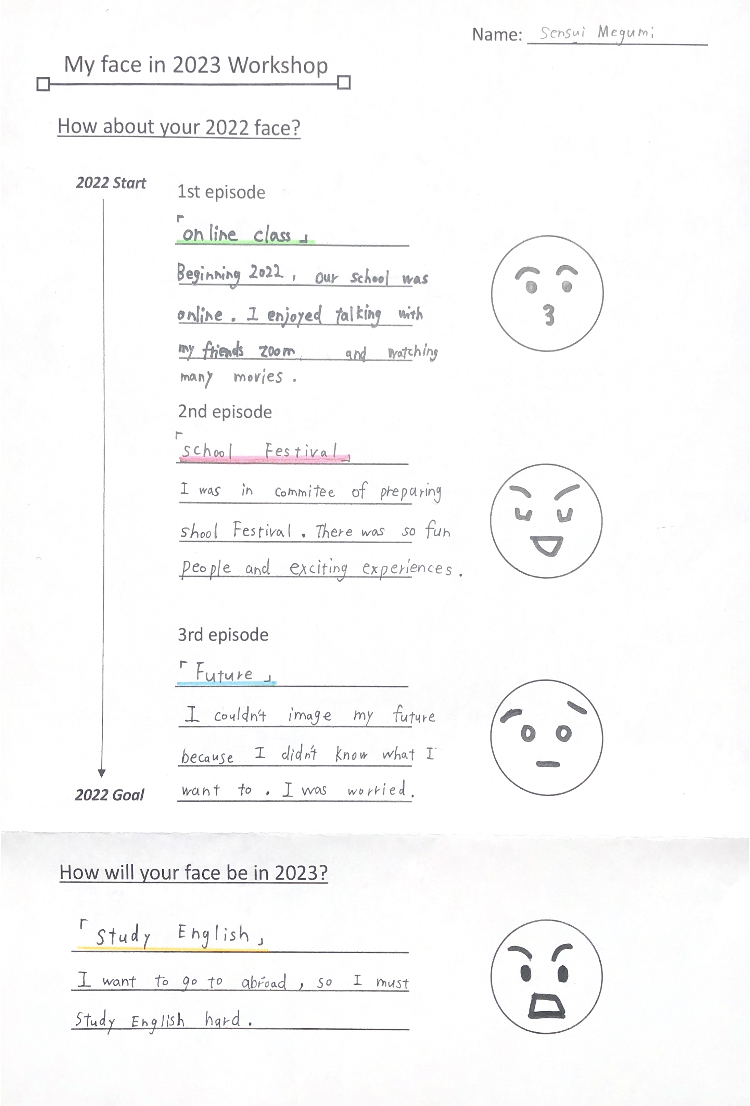 Name: Sensui Megumi
My face in 2023 Workshop
How about your 2022 face?
2022 Start
1st episode
「online class」
Beginning 2022, our school was
online. I enjoyed talking with
my friends zoom and watching
many movies.
2nd episode
「school Festival」
I was in commitee of preparing
shool Festival. There was so fun
people and exciting experiences.
3rd episode
「Future」
I couldn't image my future
because I didn't know what I
want to. I was worried.
2022 Goal
How will your face be in 2023?
「Study English」
I want to go to abroad, so I must
Study English hard.